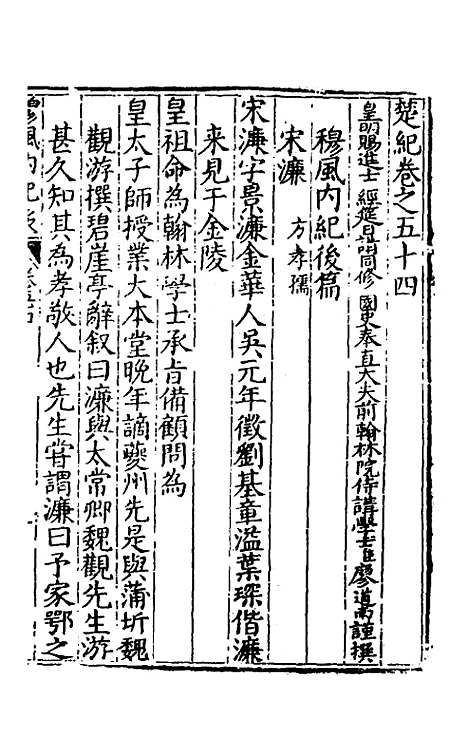 楚紀卷之五十四
皇明賜進士經筵日講官同修國史奉直大夫前翰林院侍講學士臣廖道南謹撰
穆風內紀後篇
宋濂 方孝孺
宋濂字景濂金華人吳元年徵劉基章溢葉琛偕濂
來見于金陵
皇祖命為翰林學士承旨備顧問為
皇太子師授業大本堂晚年謫夔州先是與蒲圻魏
觀游撰碧崖亭辭叙曰濂與太常卿魏觀先生游
甚久知其為孝敬人也先生嘗謂濂曰予家鄂之
穆風內紀後